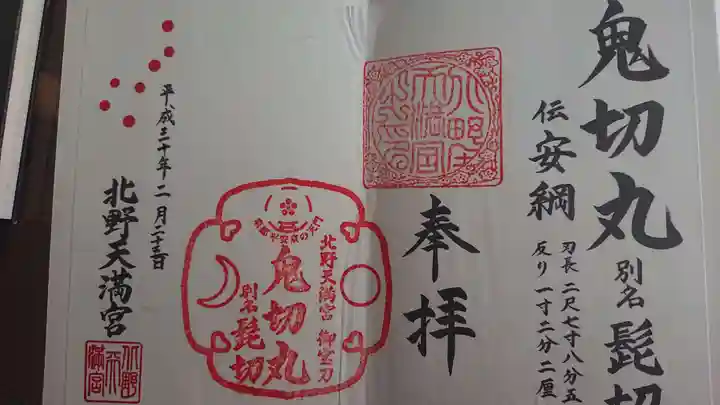 鬼切丸
別名 髭切
伝 安綱
刃長 二尺七寸八分五
反り 一寸二分二厘
奉拝
北野天満宮 御宝刀
鬼切丸
別名 髭切
平成三十年二月二十三日
北野天満宮